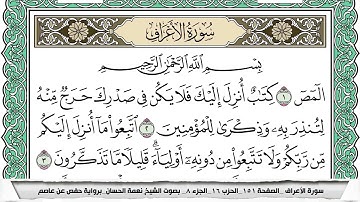 سُورَةُ الْأَعْرَافِ
بِسْمِ اللَّهِ الرَّحْمَٰنِ الرَّحِيمِ
الٓمٓصٓ ١ كِتَٰبٌ أُنزِلَ إِلَيْكَ فَلَا يَكُن فِى صَدْرِكَ حَرَجٌ مِّنْهُ
لِتُنذِرَ بِهِۦ وَذِكْرَىٰ لِلْمُؤْمِنِينَ ٢ ٱتَّبِعُوا۟ مَآ أُنزِلَ إِلَيْكُم
مِّن رَّبِّكُمْ وَلَا تَتَّبِعُوا۟ مِن دُونِهِۦٓ أَوْلِيَآءَ ۗ قَلِيلًا مَّا تَذَكَّرُونَ ٣
سورة الأعراف _ الصفحة ١٥١ _ الحزب ١٦ _ الجزء ٨ _ بصوت الشيخ نعمة الحسان _ برواية حفص عن عاصم